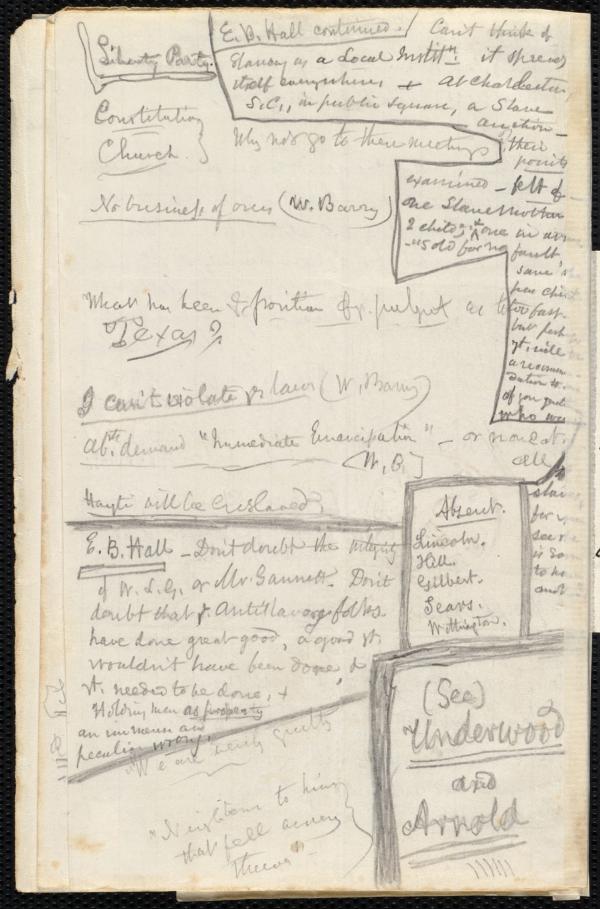 Liberty Party.
Constitution
Church.
No business of ours (W. Barry)
What has been ye position of ye pulpit as to
Texas?
I can't violate ye laws (W. Barry)
abt. demand "Immediate Emancipation" – or none at
all
W. B.
Hayti will be enslaved.
E. B. Hall continued. Can't think of
Slavery as a Local Institn. it spreads
itself everywhere + at Charleston,
S.C., in public square, a Slave
auction –
Why not go to these meetings
their
points
examined – felt of
one Slave Mother
2 chitd; + one in arms
for no fault,
too fast
who was
E. B. Hall – Don't doubt the
of W. L. G. or Mr. Gannett. Don't
doubt that ye Antislavery folks
have done great good, a good yt.
wouldn't have been done, &
yt. needed to be done, +
Holding men as property
an immense and
peculiar wrong.
"We are verily guilty
"Neighbour to him
that fell among
thieves"
Absent.
Lincoln.
Hill.
Gilbert.
Sears.
Withington.
(See)
Underwood
and
Arnold